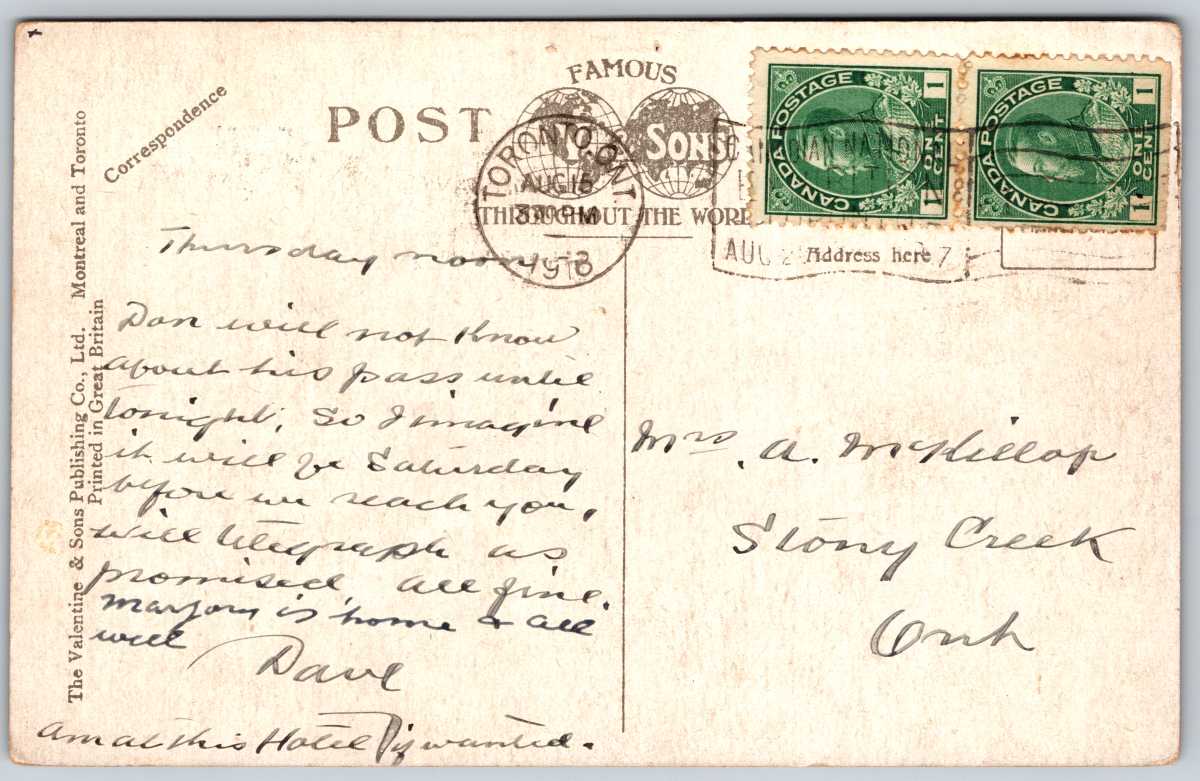 Correspondence
POST
FAMOUS
SONS
THROUGHOUT THE WORL
TORONTO, ONT
AUG 15
PM
1918
CANADA POSTAGE
1
ONE CENT
1
CANADA POSTAGE
1
ONE CENT
1
AUG
Address here
7
The Valentine & Sons Publishing Co., Ltd. Montreal and Toronto
Printed in Great Britain
Thursday noon
Dan will not know
about his pass until
tonight, So I imagine
it will be Saturday
before we reach you,
will telegraph as
promised, all fine.
Marjory is home & all
well
Dave
am at this Hotel if wanted.
Mrs. A. McKillop
Stony Creek
Ont